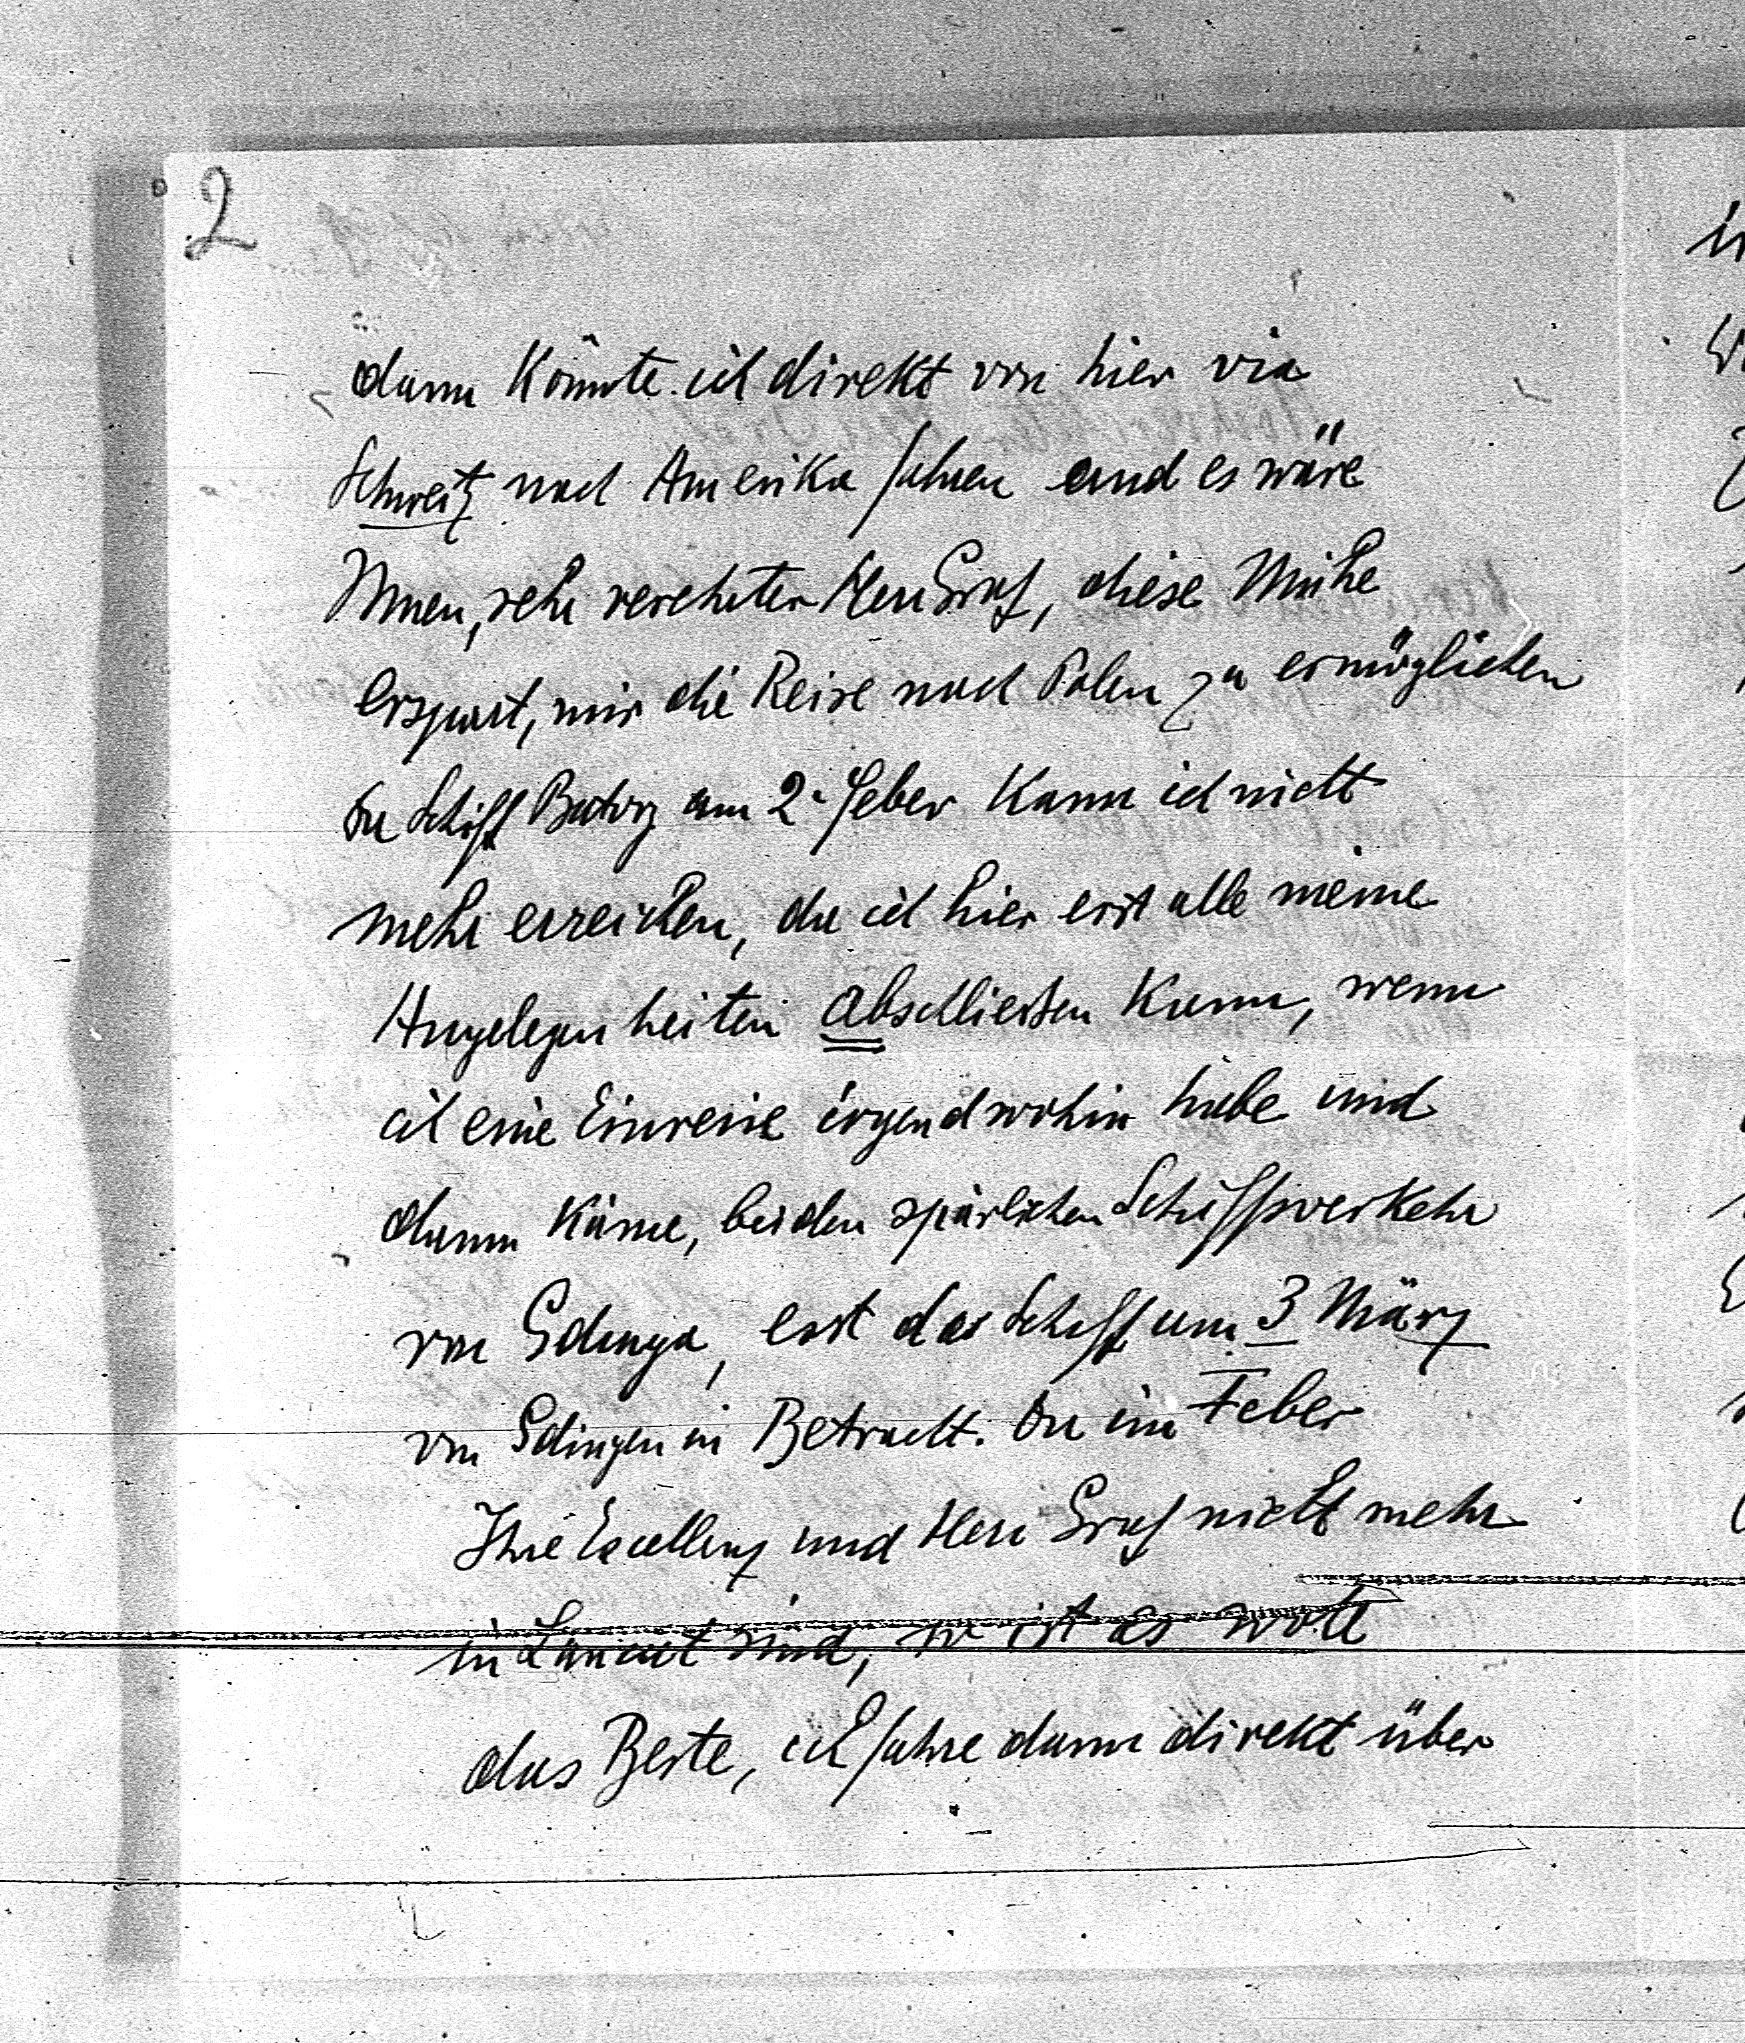 2
dann könnte ich direkt von hier via
Schweitz nach Amerika fahren und es wäre
Ihnen, sehr verehrter Herr Graf, diese Mühe
erspart, mir die Reise nach Polen zu ermöglichen
Da Schiff Batory am 2. Feber kann ich nicht
mehr erreichen, da ich hier erst alle meine
Angelegenheiten abschliessen kann, wenn
ich eine Einreise irgendwohin habe und
dann käme, bei den spärlichen Schiffsverkehr
von Gdinga, erst das Schiff am 3 März
von Gdingen in Betracht. Da im Feber
Ihre Excellenz und Herr Graf nicht mehr
in Lancut sind, so ist es wohl
das Beste, ich fahre dann direkt über